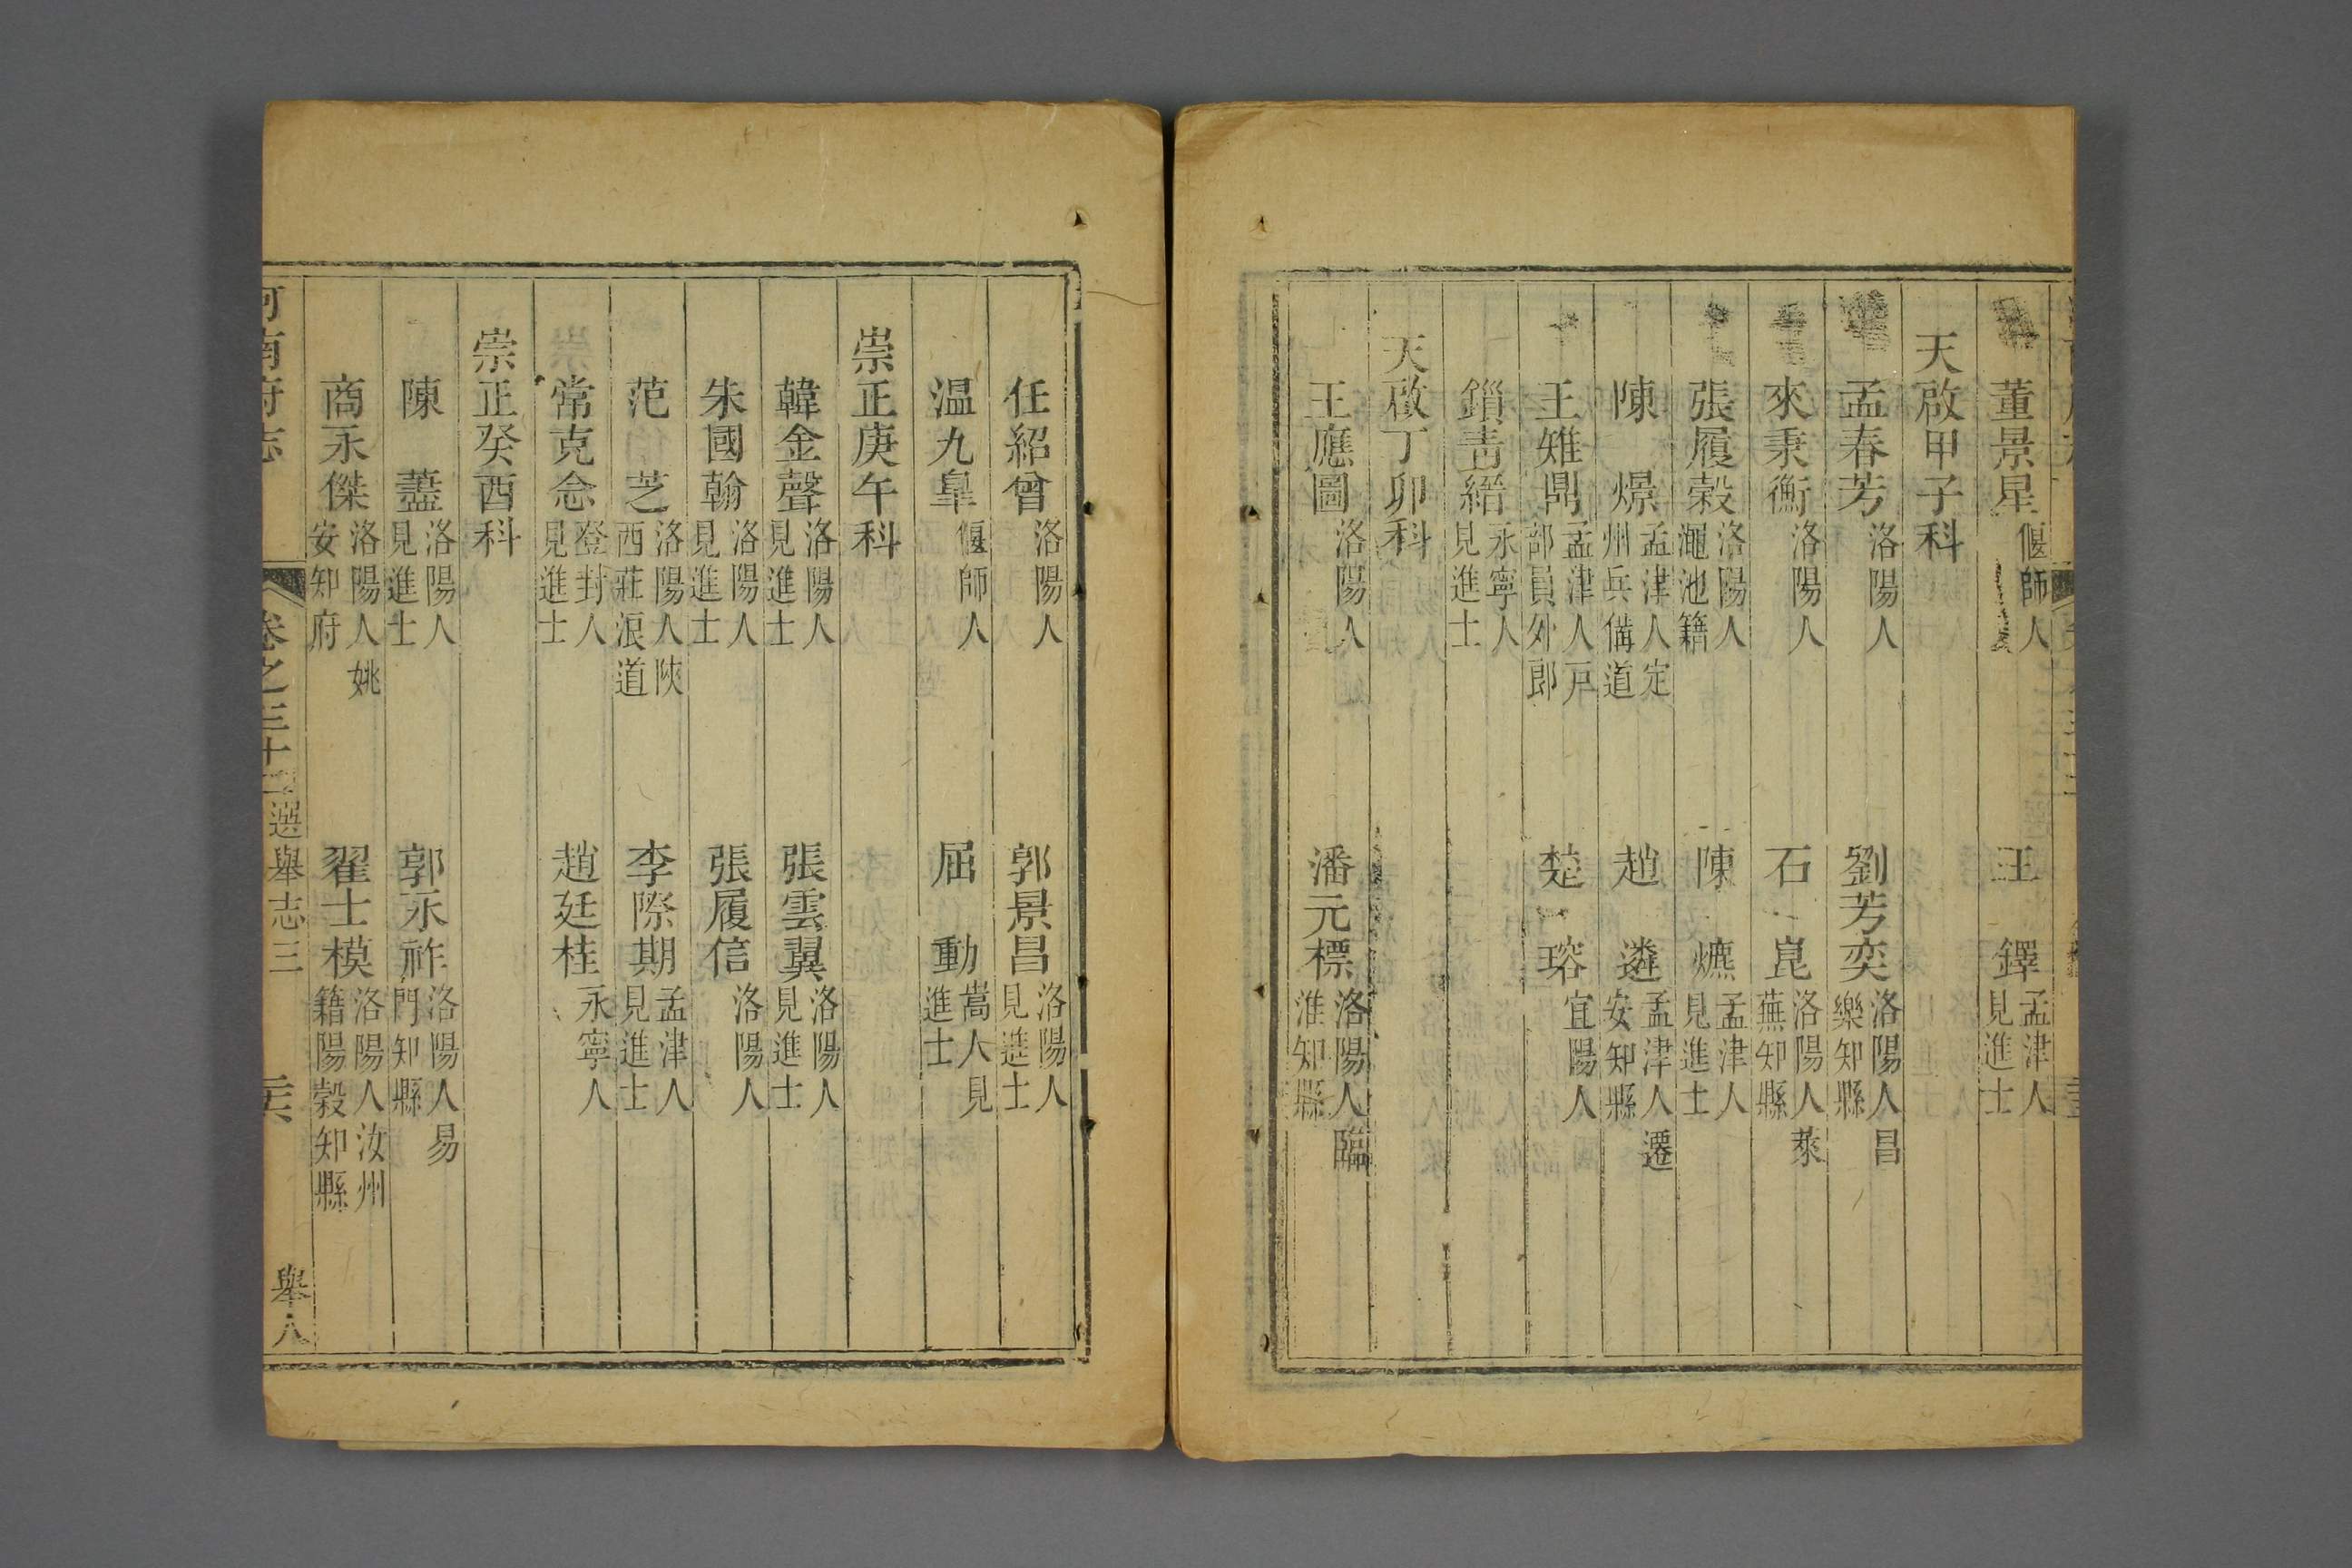 董景星 偃師人 王鐸 孟津人見進士
天啟甲子科
孟春芳 洛陽人 劉芳奕 洛陽人昌樂知縣
來秉衡 洛陽人 石崑 洛陽人萊蕪知縣
張履榖 洛陽人澠池籍 陳爊 孟津人見進士
陳燝 孟津人定州兵備道 趙遴 孟津人遷安知縣
王雉鼎 孟津人戸部員外郎 楚瑢 宜陽人
鎖青縉 永寧人見進士
天啟丁卯科
王應圖 洛陽人 潘元標 洛陽人臨淮知縣
任紹曾 洛陽人 郭景昌 洛陽人見進士
温九臯 偃師人 屈動 嵩人見進士
崇正庚午科
韓金聲 洛陽人見進士 張雲翼 洛陽人見進士
朱國翰 洛陽人見進士 張履信 洛陽人
范芝 洛陽人陝西莊浪道 李際期 孟津人見進士
常克念 登封人見進士 趙廷桂 永寧人
崇正癸酉科
陳藎 洛陽人見進士 郭永祚 洛陽人易門知縣
商永傑 洛陽人姚安知府 翟士模 洛陽人汝州籍陽榖知縣
河南府志 卷之三十二 選舉志三 舉人